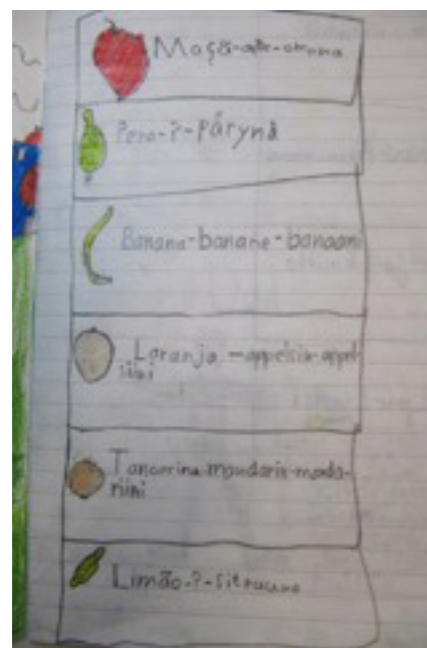 Maçã-æble-omena
Pera-?-Pärynä
Banana-banane-banaani
Laranja-appelsin-appel-
siini
mandarin-manda-
riini
Limão-?-sitruuna